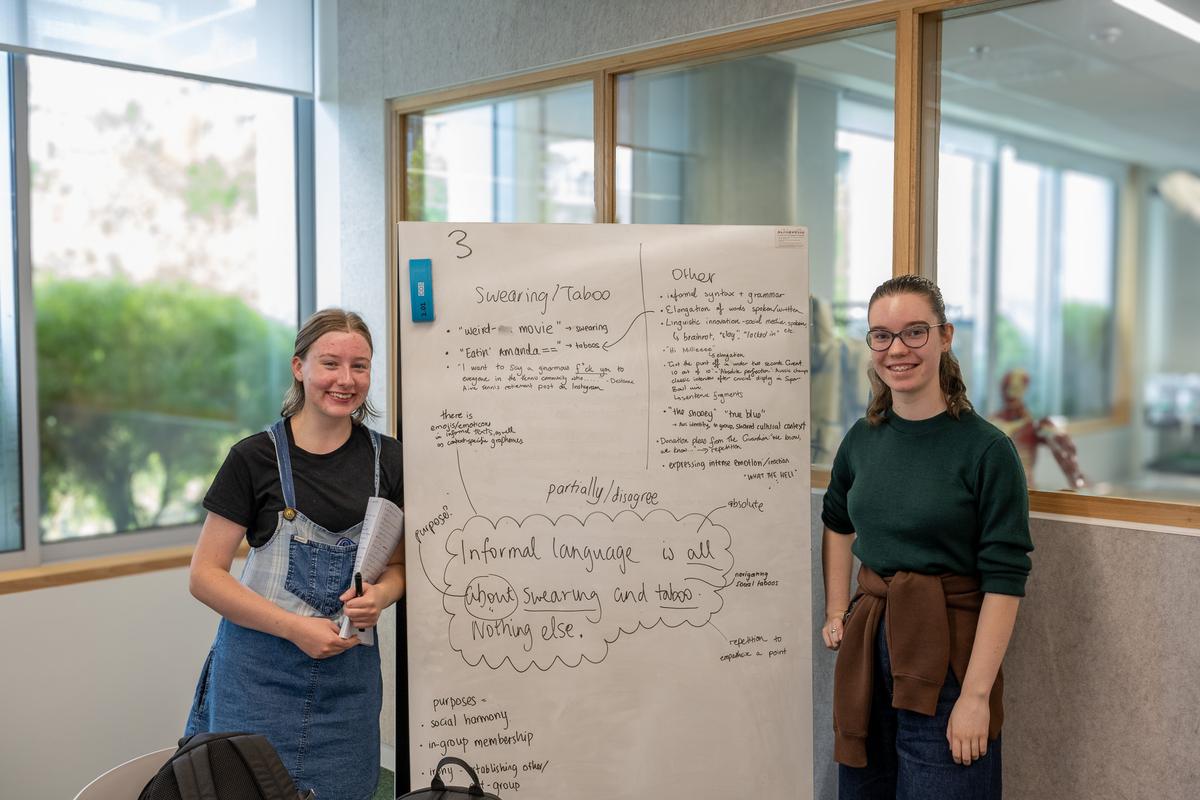 3
Swearing/Taboo
• "weird- movie" → swearing
• "Eatin' Amanda==" → taboos
• "I want to say a ginormous f*ck you to
everyone in the tennis community who...... - Destanee
Aiava tennis retirement post on Instagram
there is
emojis/emoticons
in informal texts, as well
as context-specific graphemes
Other
• informal syntax + grammar
• Elongation of words spoken/written
• Linguistic innovation - social media, spoken
↳ brainrot, "slay", "locked in" etc.
- "Hi Millieeee"
↳ elongation
• "Got the point off in under two seconds. Great.
10 out of 10" - "Absolute perfection": Aussie
classic interview after crucial display in Super
Bowl win
↳ sentence fragments
• "the snooey" "true blue"
→ Aus identity, in group, shared cultural context
• Donation pleas from the Guardian "We know,
we know..." → repetition
• expressing intense emotion/reaction
"WHAT THE HELL"
partially/disagree
purpose?
absolute
Informal language is all
about swearing and taboo.
Nothing else.
navigating
social taboos
repetition to
emphasise a point
purposes =
• social harmony
• in-group membership
• irony - establishing other/
group
2.01